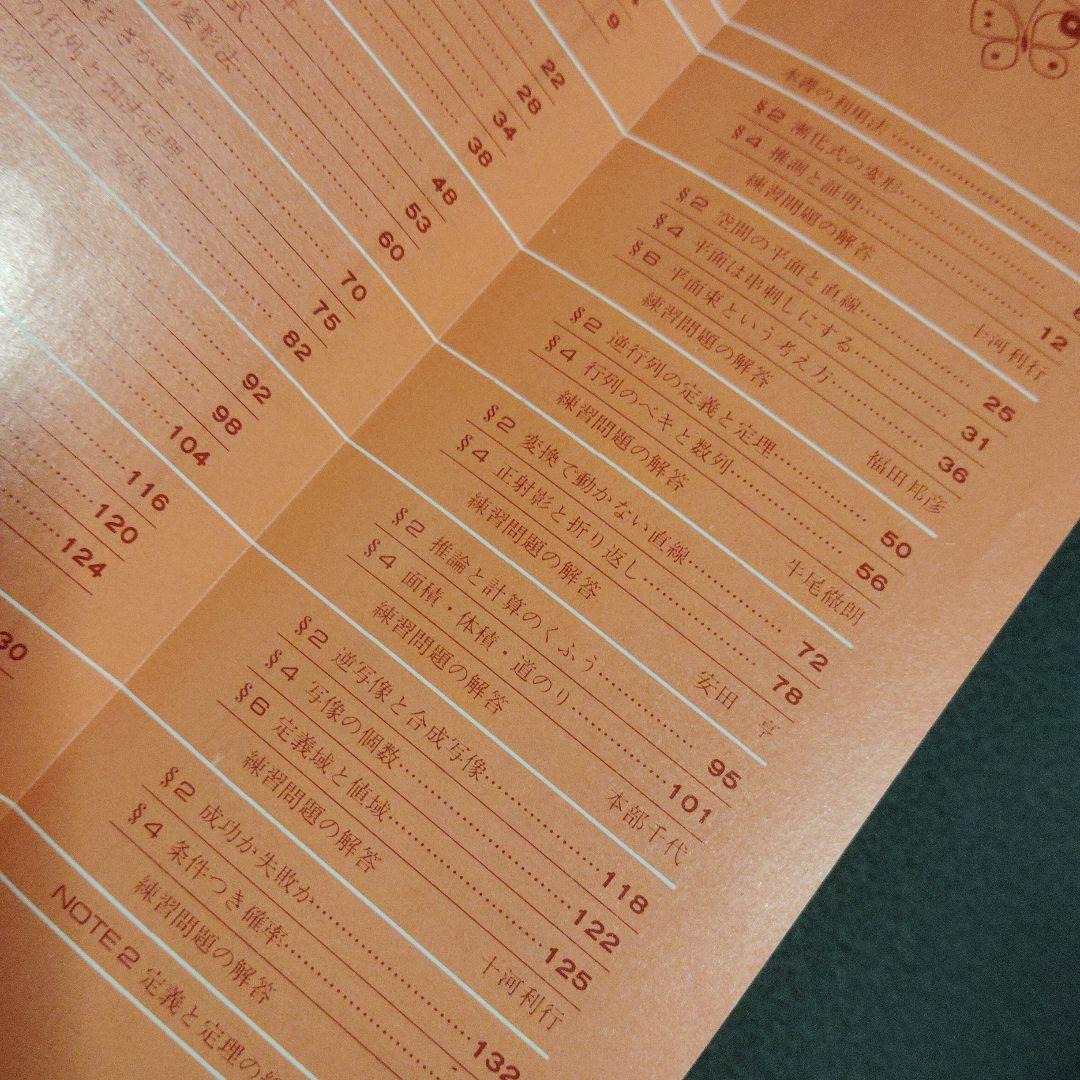 式
変形法
をさがせ
行列と
9
22
28
34
38
48
53
60
70
75
82
92
98
104
116
120
124
30
本書の利用法
§2 漸化式の変形
§4 推測と証明
練習問題の解答
12
十河利行
§2 空間の平面と直線 25
§4 平面は串刺しにする 31
§6 平面束という考え方 36
練習問題の解答 福田邦彦
§2 逆行列の定義と定理 50
§4 行列のベキと数列 56
練習問題の解答 牛尾徹朗
§2 変換で動かない直線 72
§4 正射影と折り返し 78
練習問題の解答 安田 亨
§2 推論と計算のくふう 95
§4 面積・体積・道のり 101
練習問題の解答 本部千代
§2 逆写像と合成写像 118
§4 写像の個数 122
§6 定義域と値域 125
練習問題の解答 十河利行
§2 成功か失敗か 132
§4 条件つき確率
練習問題の解答
NOTE 2 定義と定理の